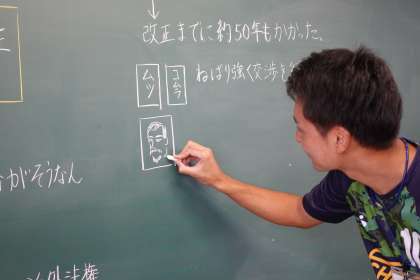 正
改正までに約50年もかかった。
ムツ
コムラ
ねばり強く交渉を
がそうなん
外法権